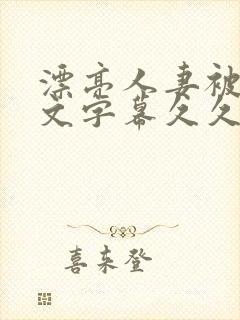 漂亮人妻被
文字幕久久
喜来登